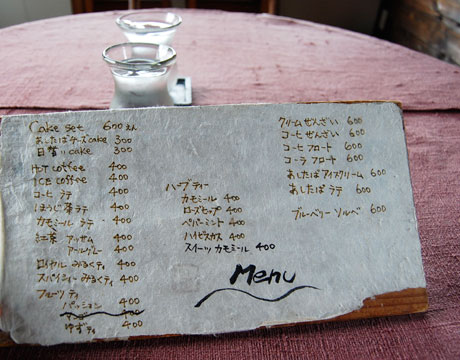 Cake set 600えん
あしたばチーズcake 300
日替りcake 300
HOT coffee 400
ICE coffee 400
コーヒ ラテ 400
ほうじ茶ラテ 400
カモミール ラテ 400
紅茶 アッサム 400
アールグレー 400
ロイヤル みるくティ 400
スパイシー みるくティ 400
フルーツ ティ
パッション 400
400
ゆずティ 400
ハーブティー
カモミール 400
ローズヒップ 400
ペパーミント 400
ハイビスカス 400
スイーツ カモミール 400
クリームぜんざい 600
コーヒぜんざい 600
コーヒ フロート 600
コーラ フロート 600
あしたばアイスクリーム 600
あしたば ラテ 600
ブルーベリー ソルベ 600
Menu